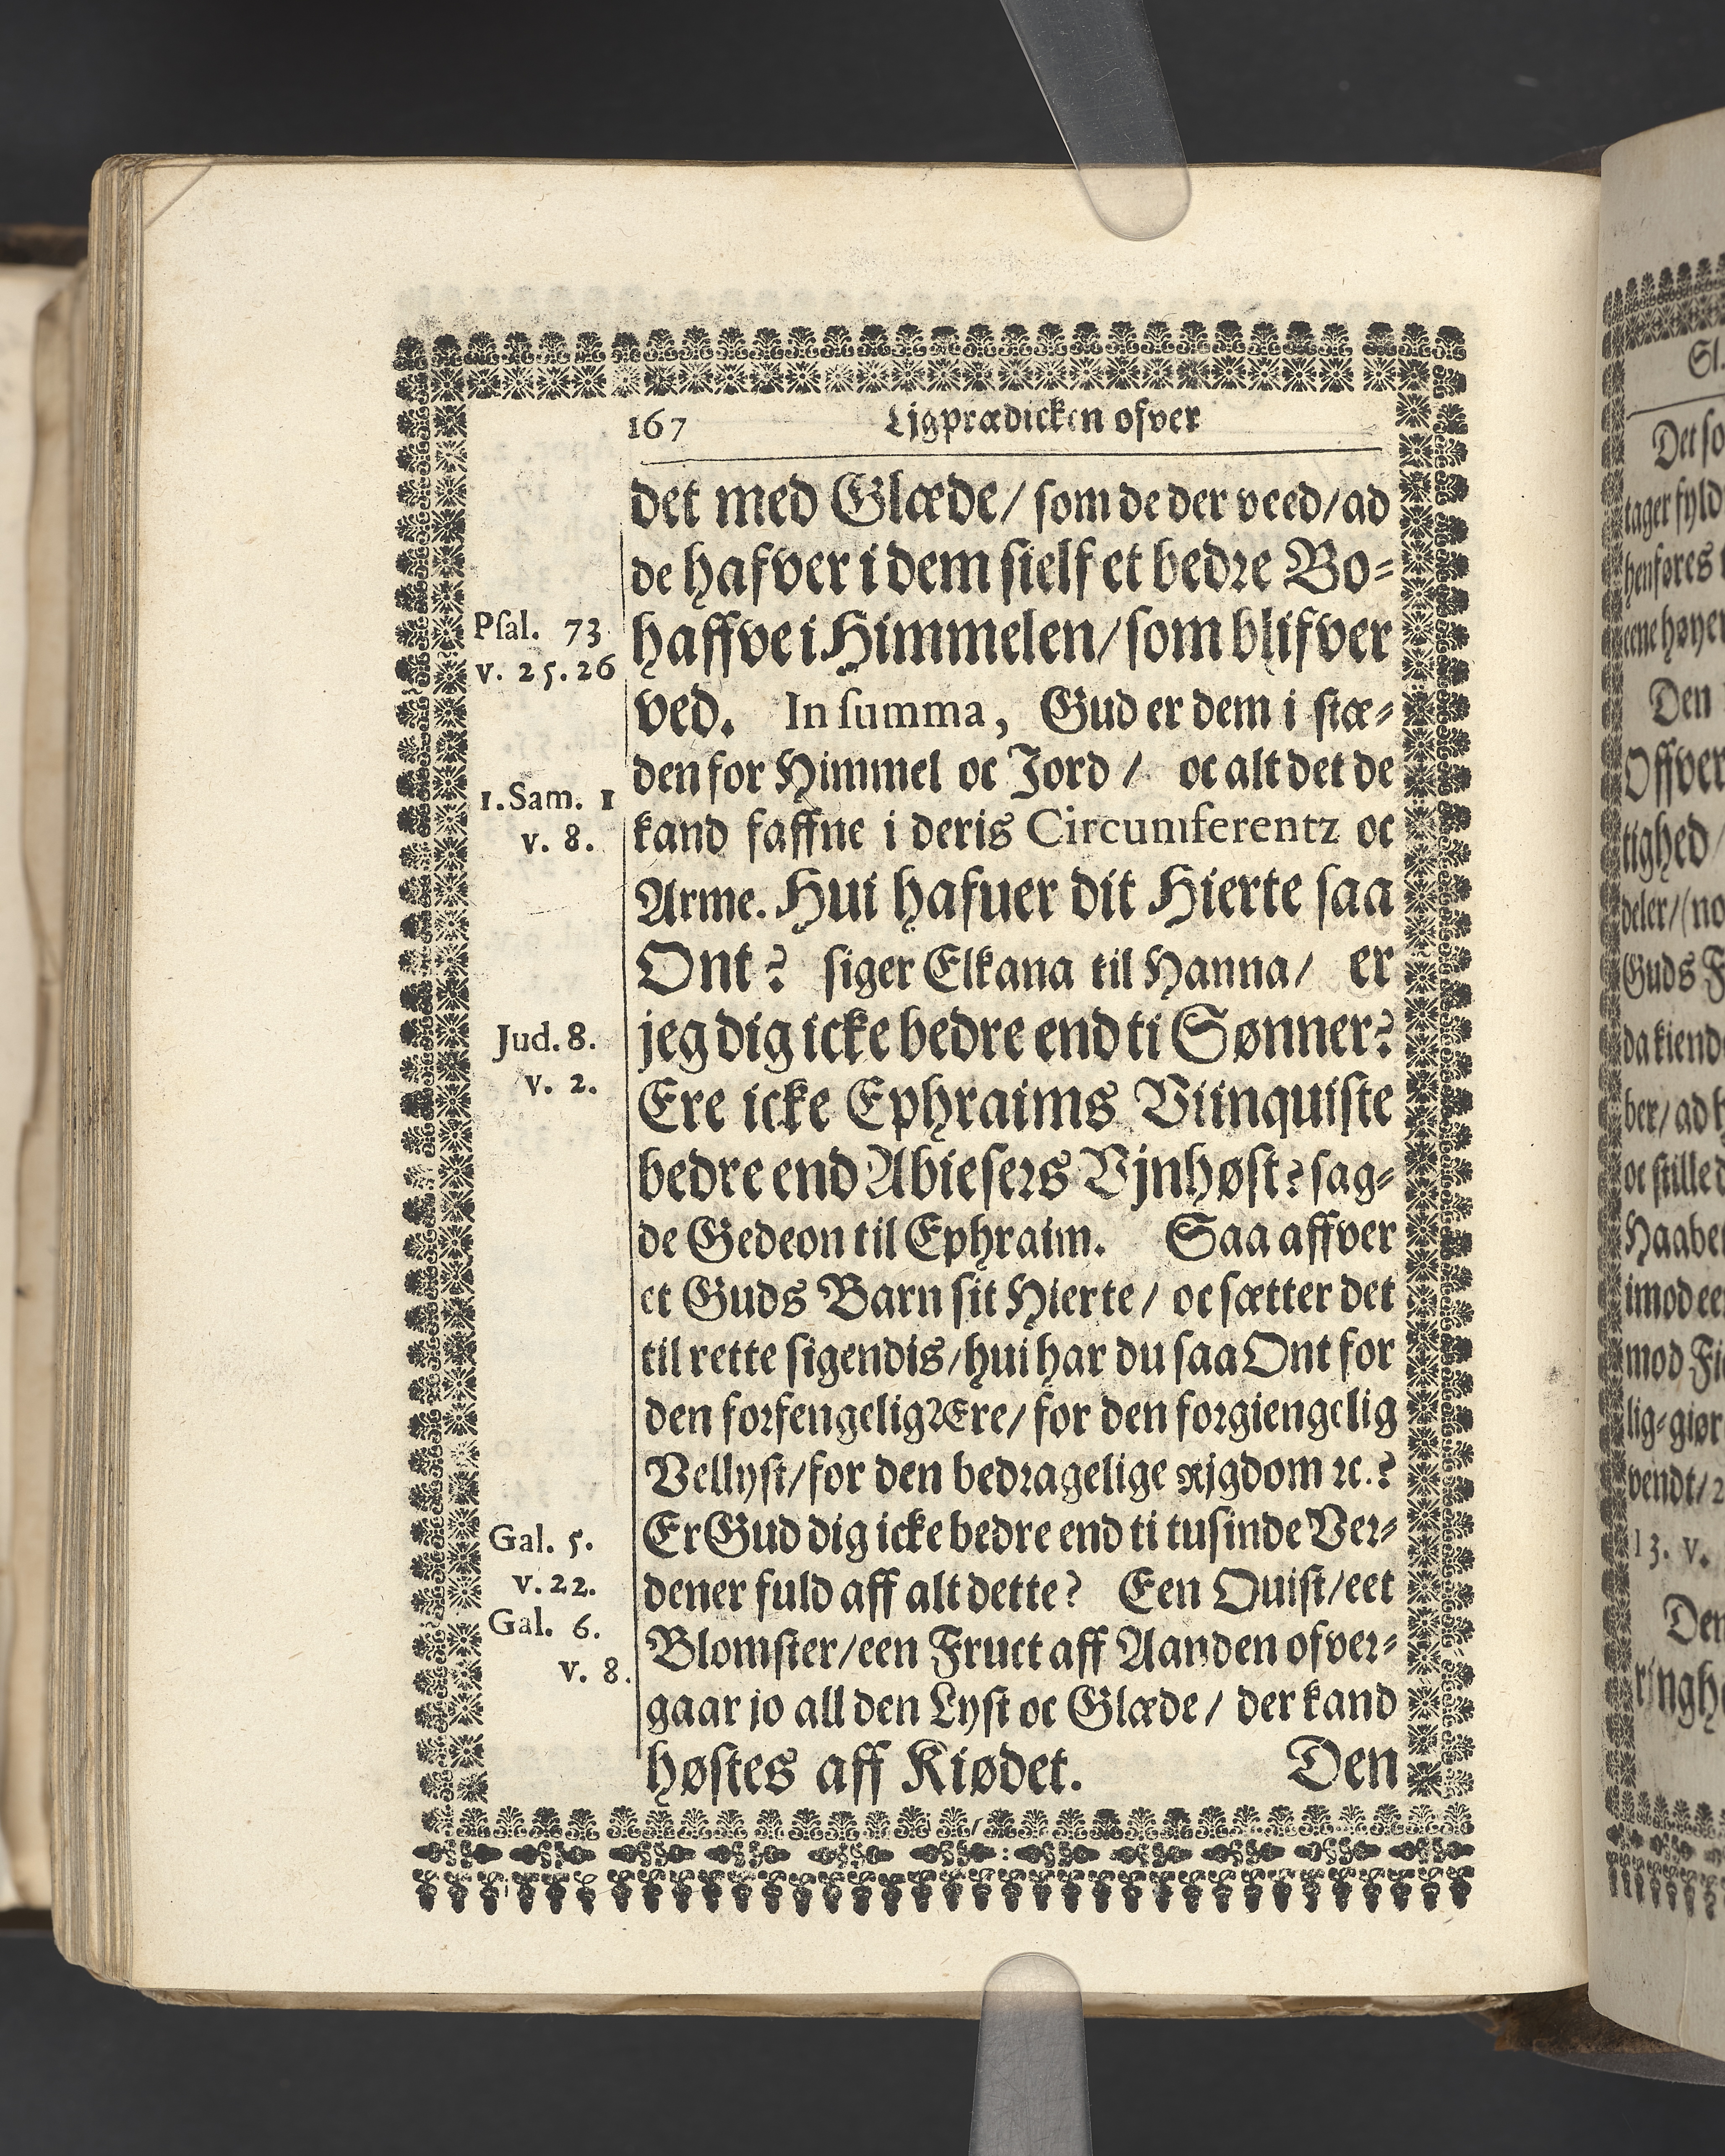 167 Ligprædicken ofver
det med Glæde/ som de der veed/ ad
de hafver i dem sielf et bedre Bo-
haffve i Himmelen/ som blifver
ved. In summa, Gud er dem i stæ-
den for Himmel oc Jord / oc alt det de
kand faffne i deris Circumferentz oc
Arme. Hui hafuer dit Hierte saa
Ont? siger Elkana til Hanna/ er
jeg dig icke bedre end ti Sønner?
Ere icke Ephraims Viinquiste
bedre end Abiesers Vjnhøst? sag-
de Gedeon til Ephraim. Saa affver
et Guds Barn sit Hierte / oc sætter det
til rette sigendis/ hui har du saa Ont for
den forfengelig Ære/ for den forgiengelig
Vellyst/ for den bedragelige Rjgdom ꝛc.?
Er Gud dig icke bedre end ti tusinde Ver-
dener fuld aff alt dette? Een Quist/ eet
Blomster/ een Fruct aff Aanden ofver-
gaar jo all den Lyst oc Glæde / der kand
høstes aff Kiødet. Den
Psal. 73
v. 25.26
1. Sam. 1
v. 8.
Jud. 8.
v. 2.
Gal. 5.
v. 22.
Gal. 6.
v. 8.
Sl.
Det so
tager fyld
henføres
eene høyer
Den
Offver
tighed/
deler/ (no
Guds F
da kiend
ber/ ad h
oc stille d
Haaber
imod ee
mod Fi
lig-giør
vendt/ 2
13. v.
Den
ringhe